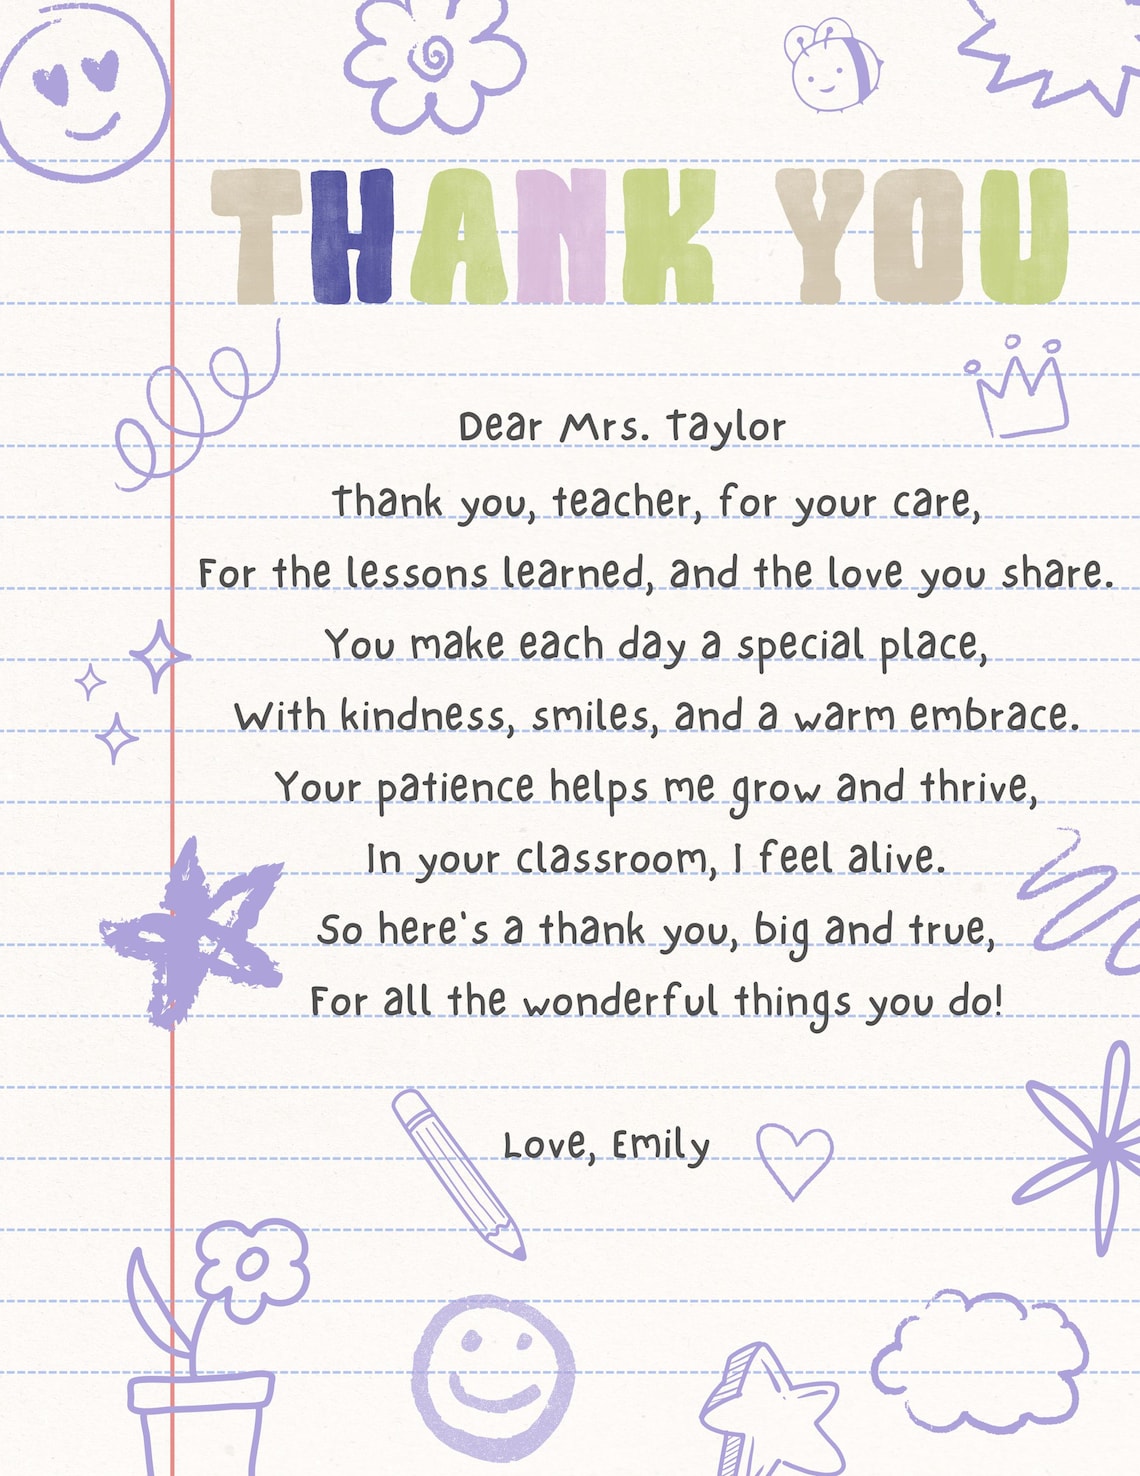 THANK YOU
Dear Mrs. Taylor
Thank you, teacher, for your care,
For the lessons learned, and the love you share.
You make each day a special place,
With kindness, smiles, and a warm embrace.
Your patience helps me grow and thrive,
In your classroom, I feel alive.
So here's a thank you, big and true,
For all the wonderful things you do!
Love, Emily